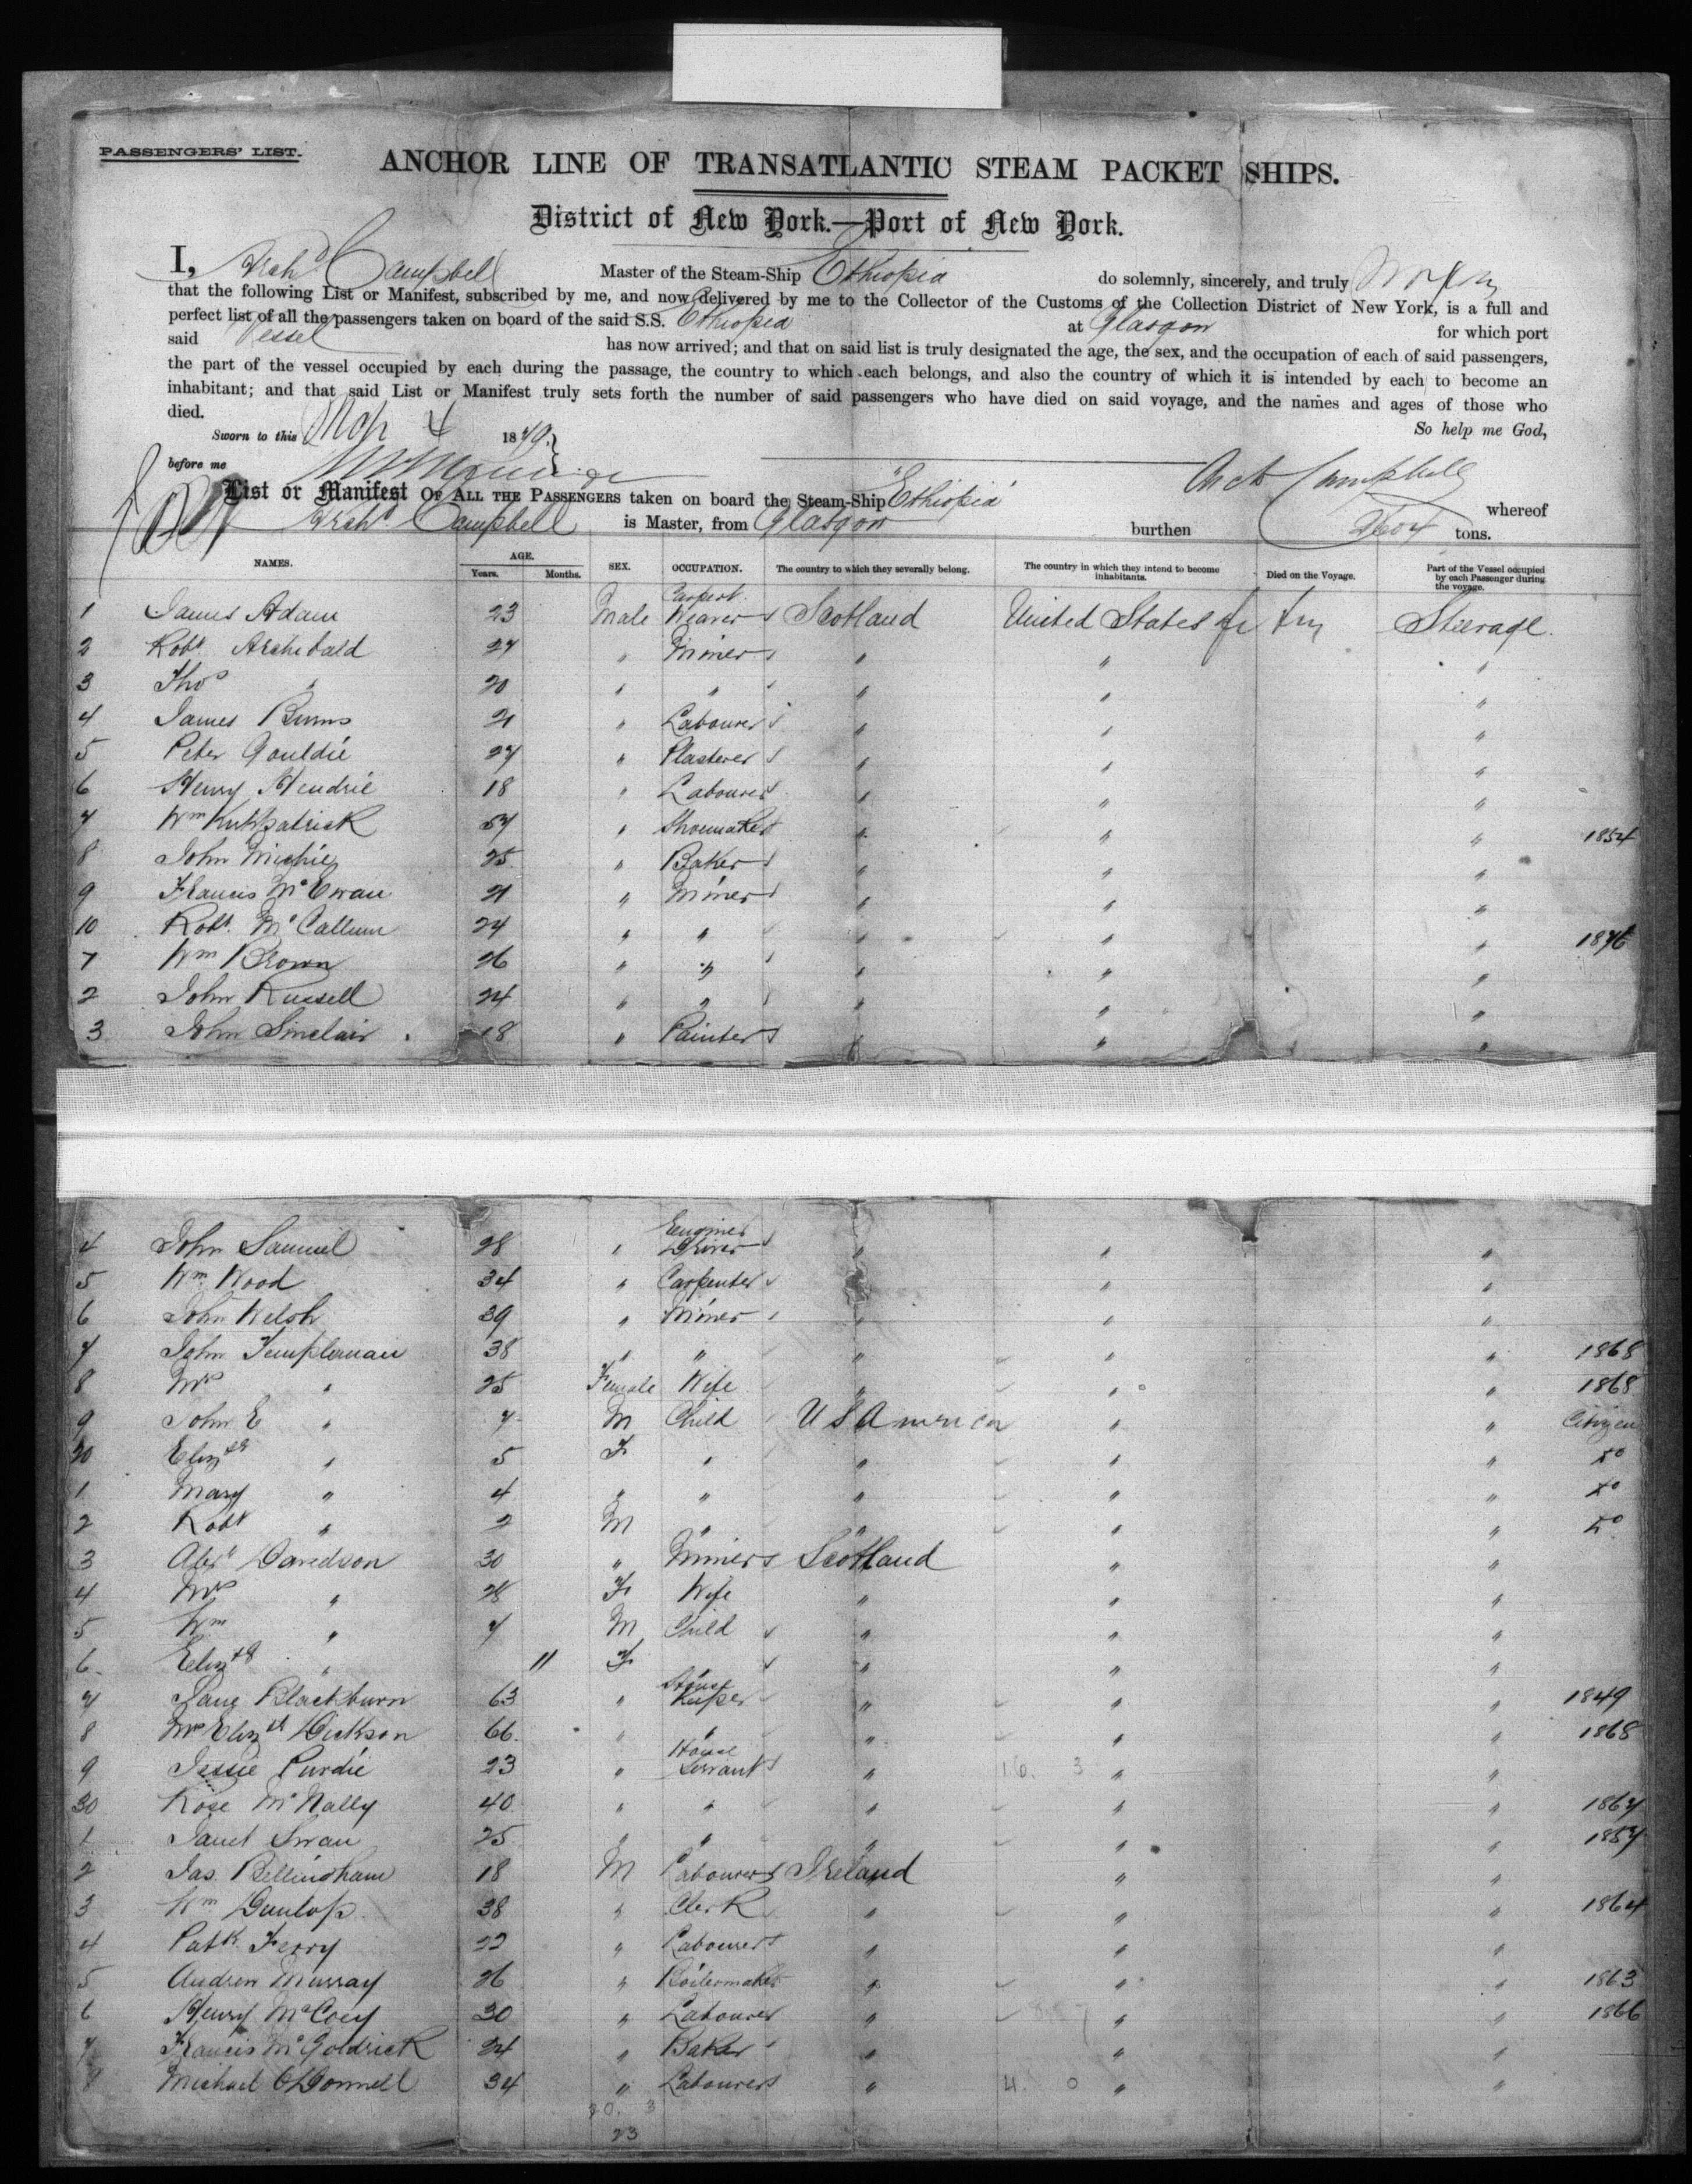 PASSENGERS' LIST.
ANCHOR LINE OF TRANSATLANTIC STEAM PACKET SHIPS.
District of New York.—Port of New York.
I, Archd Campbell Master of the Steam-Ship Ethiopia do solemnly, sincerely, and truly
that the following List or Manifest, subscribed by me, and now delivered by me to the Collector of the Customs of the Collection District of New York, is a full and
perfect list of all the passengers taken on board of the said S.S. Ethiopia at Glasgow for which port
said Vessel has now arrived; and that on said list is truly designated the age, the sex, and the occupation of each of said passengers,
the part of the vessel occupied by each during the passage, the country to which each belongs, and also the country of which it is intended by each to become an
inhabitant; and that said List or Manifest truly sets forth the number of said passengers who have died on said voyage, and the names and ages of those who
died.
So help me God,
Sworn to this 4 1879.
before me
Archd Campbell
List or Manifest OF ALL THE PASSENGERS taken on board the Steam-Ship "Ethiopia" whereof
Archd Campbell is Master, from Glasgow burthen 2604 tons.
NAMES. AGE. Years. Months. SEX. OCCUPATION. The country to which they severally belong. The country in which they intend to become inhabitants. Died on the Voyage. Part of the Vessel occupied by each Passenger during the voyage.
1 James Adam 23 Male Carpet Weaver Scotland United States of Am Steerage.
2 Robt Archibald 27 " Miner " " "
3 Thos " 20 " " " " "
4 James Burns 21 " Labourer " " "
5 Peter Gouldie 27 " Plasterer " " "
6 Henry Hendrie 18 " Labourer " " "
7 Wm Kirkpatrick 57 " Shoemaker " " " 1854
8 John Michie 25 " Baker " " "
9 Francis McEwan 21 " Miner " " "
10 Robt. McCallum 24 " " " " " 1876
1 Wm Brown 26 " " " " "
2 John Russell 24 " " " " "
3 John Sinclair 18 " Painter " " "
4 John Samuel 28 " Engine Driver " " "
5 Wm Wood 34 " Carpenter " " "
6 John Welsh 39 " Miner " " "
7 John Templeman 38 " " " " " 1868
8 Mrs " 25 Female Wife " " " 1868
9 John E " 7 M Child U S America " " Citizen
20 Elizth " 5 F " " " " Do
1 Mary " 4 " " " " " Do
2 Robt " 2 M " " " " Do
3 Alexr Davidson 30 " Miner Scotland " "
4 Mrs " 28 F Wife " " "
5 Wm " 7 M Child " " "
6 Elizth " 11 F " " " "
7 Jane Blackburn 63 " House Keeper " " " 1849
8 Mrs Elizth Dickson 66 " " " " " 1868
9 Jessie Purdie 23 " House Servant " " "
30 Rose McNally 40 " " " " " 1867
1 Janet Swan 25 " " " " " 1857
2 Jas. Bellingham 18 M Labourer Ireland " "
3 Wm Dunlop 38 " Clerk " " " 1864
4 Patk Ferry 22 " Labourer " " "
5 Andrew Murray 26 " Boilermaker " " " 1863
6 Henry McCoey 30 " Labourer " " " 1866
7 Francis McGoldrick 24 " Baker " " "
8 Michael O'Donnell 34 " Labourer " " "
20. 3
23